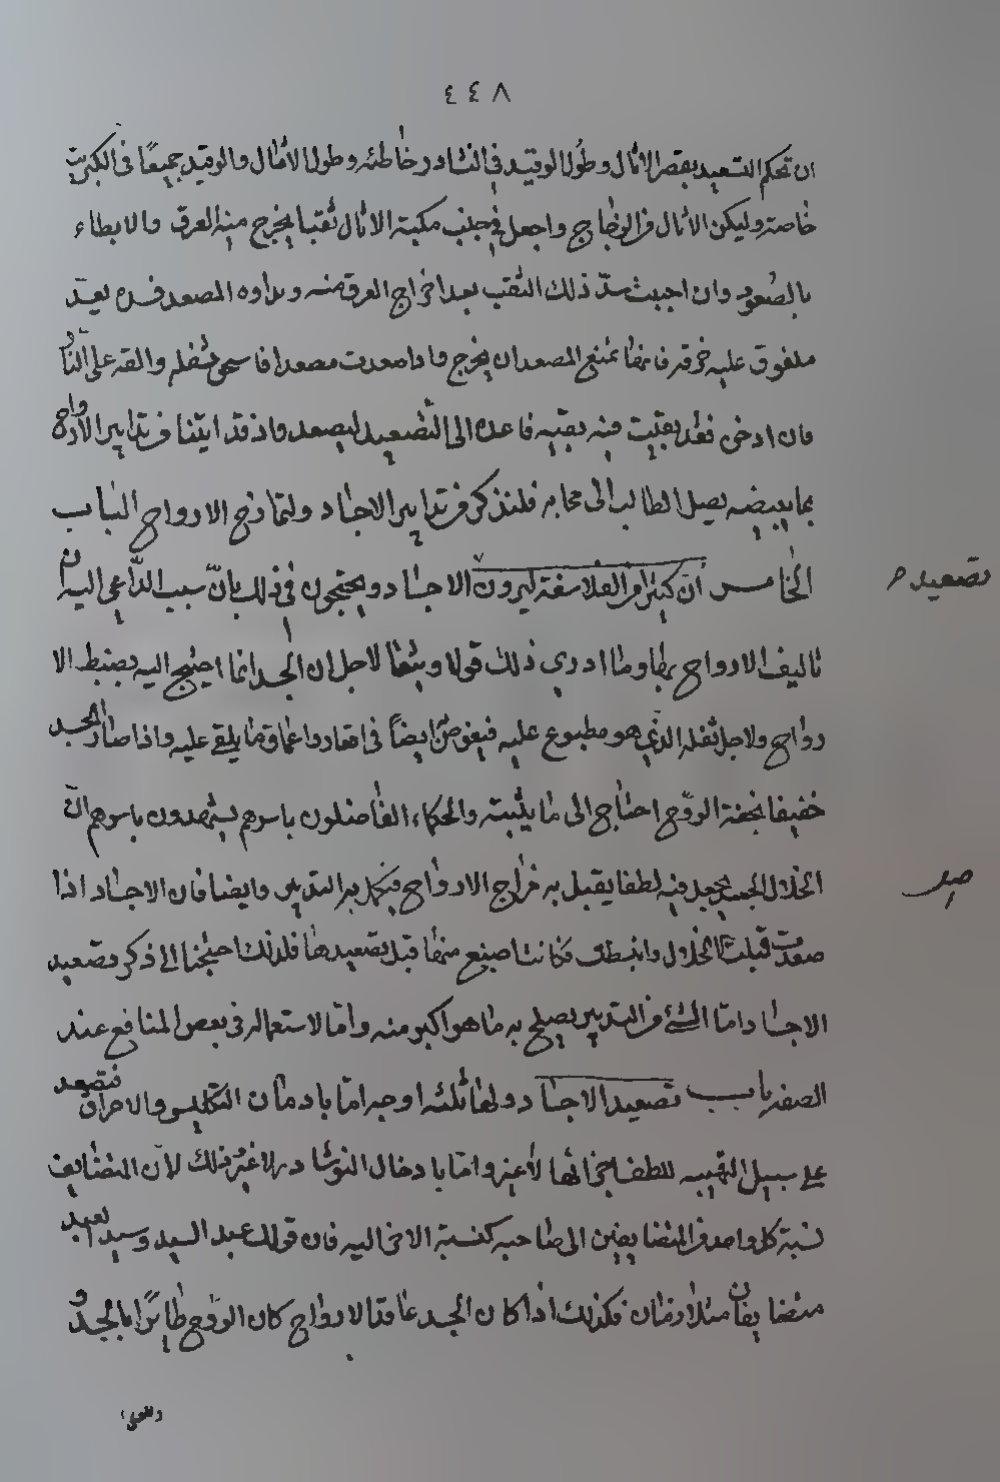 ٤٤٨
ان تحكم التصعيد بقصر الاثال وطول الوقيد في النشادر خاصة وطول الاثال والوقيد جميعًا في الكبريت
خاصة وليكن الاثال من الزجاج واجعل في جنب مكبة الاثال ثقبا يخرج منه العرق والابطاء
بالصعود وان احببت سدّ ذلك الثقب بعد اخراج العرق منه وبداوه المصعد فسده بعود
ملفوف عليه خرقه فانها تمنع المصعد ان يخرج فاذا صعدت مصعدا فاسحق ثفله والقه على النار
فان ادخن فقد بقيت منه بقيه فاعده الى التصعيد ليصعد واذ قد اتينا من تدابير الارواح
بما ببعضه يصل الطالب الى محابه فلنذكر من تدابير الاجساد ولتمازج الارواح الباب
الخامس ان كثيرا من الفلاسفة ليرون الاجساد ويحتجون في ذلك بانّ سبب الدّاعي اليه ان
تصعيد
تاليف الارواح بها وما ادري ذلك قولا وبثقا لاجل ان الجسد انما احتيج اليه بضبط الا
رواح ولاجل ثقله الذي هو مطبوع عليه فيغوص ايضاً في اقعار واعماق ما يلقى عليه واذا صار الجسد
خفيفا بخفة الروح احتاج الى ما يثبته والحكماء الفاضلون باسرهم يشهدون باسرهم انّ
انحلال الجسد يجعل فيه لطفا يقبل به مزاج الارواح فيكمل به التدبير وايضا فان الاجساد اذا
صد
صعدت قبلت الحلال وانبسطت فكانت اصبغ منها قبل تصعيدها فلذلك احتجنا الى ذكر تصعيد
الاجساد امّا الشيء من التدبير يصلح به ما هو اكبر منه وامّا لاستعماله في بعض المنافع عند
الصفه باب تصعيد الاجساد ولها ثلثه اوجه امّا بادمان التكليس والاحراق فتصعد
على سبيل التهبيه للطف اجزائها لا غير وامّا بادخال النوشادر لا غير ذلك لان المتضايف
نسبة كل واحد من المتضايفين الى صاحبه كنسبة الاخر اليه فان قولك عبد السيد وسيد العبد
متضايفان مثلازمان فكذلك اذا كان الجسد عاقدا لارواح كان الروح طائرًا بالجسد و